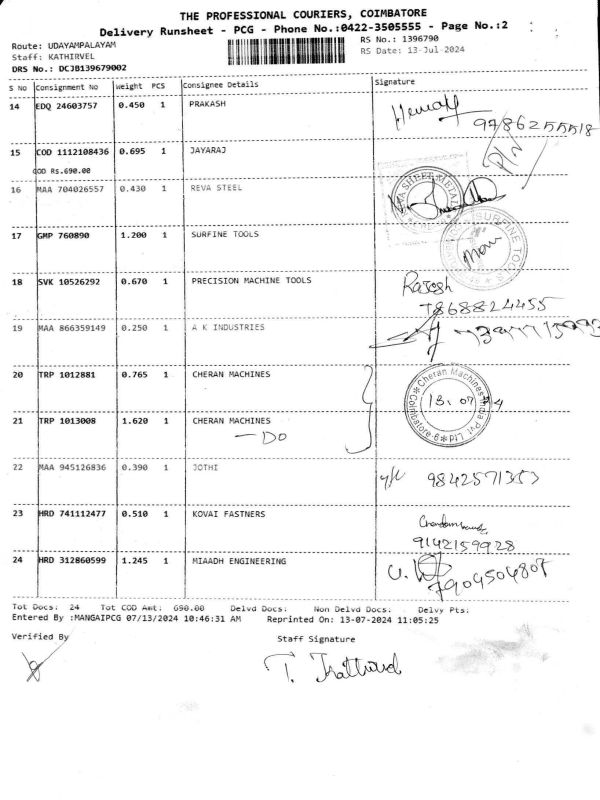 THE PROFESSIONAL COURIERS, COIMBATORE
Delivery Runsheet - PCG - Phone No.:0422-3505555 - Page No.:2
Route: UDAYAMPALAYAM
RS No.: 1396790
Staff: KATHIRVEL
RS Date: 13-Jul-2024
DRS No.: DCJB139679002
S No Consignment No Weight PCS Consignee Details Signature
14 EDQ 24603757 0.450 1 PRAKASH
9786255518
15 COD 1112108436 0.695 1 JAYARAJ
COD Rs.690.00
16 MAA 704026557 0.430 1 REVA STEEL
17 GMP 760890 1.200 1 SURFINE TOOLS
SURFINE TOOLS
18 SVK 10526292 0.670 1 PRECISION MACHINE TOOLS
Rajesh
7868824455
19 MAA 866359149 0.250 1 A K INDUSTRIES
20 TRP 1012881 0.765 1 CHERAN MACHINES
Cheran Machines India Pvt Ltd
Coimbatore-6
13.07
21 TRP 1013008 1.620 1 CHERAN MACHINES
-DO
22 MAA 945126836 0.390 1 JOTHI
9842571353
23 HRD 741112477 0.510 1 KOVAI FASTNERS
9142159928
24 HRD 312860599 1.245 1 MIAADH ENGINEERING
7904504807
Tot Docs: 24 Tot COD Amt: 690.00 Delvd Docs: Non Delvd Docs: Delvy Pts:
Entered By :MANGAIPCG 07/13/2024 10:46:31 AM Reprinted On: 13-07-2024 11:05:25
Verified By Staff Signature